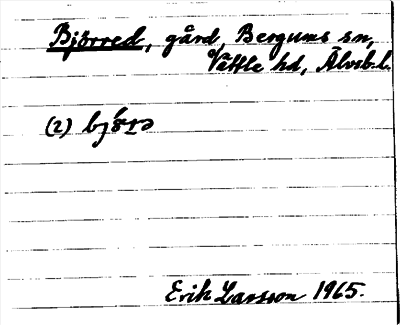 Björred, gård, Bergums sn,
Vättle hd, Älvsb. l.
(2)
Erik Larsson 1965.